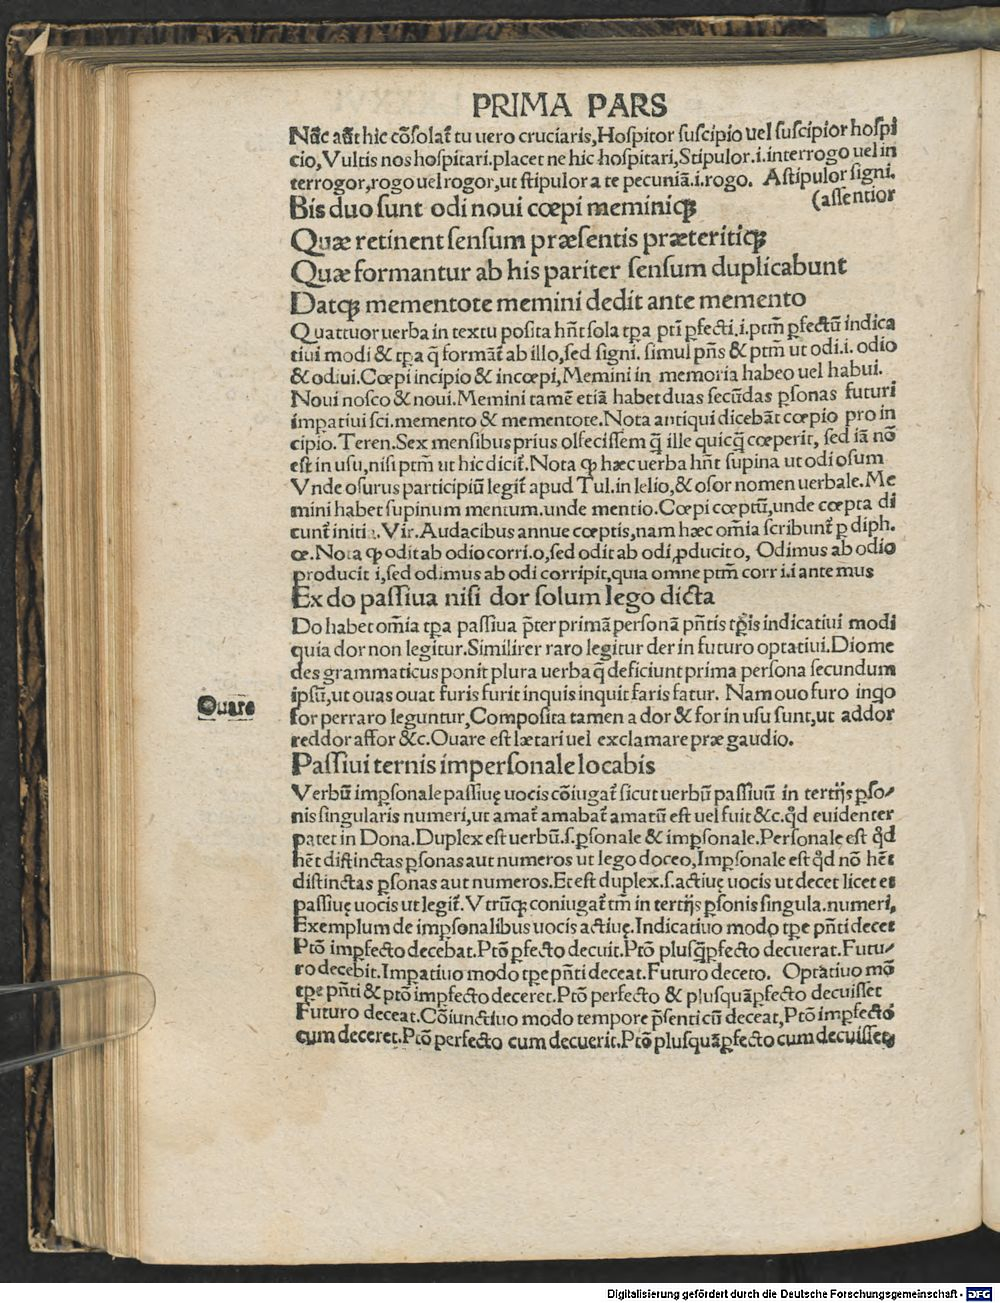 PRIMA PARS
Nūc aūt hic cōſolat̄ tu uero cruciaris,Hoſpitor ſuſcipio uel ſuſcipior hoſpi
cio,Vultis nos hoſpitari.placet ne hic hoſpitari,Stipulor.i.interrogo uel in
terrogor,rogo uel rogor,ut ſtipulor a te pecuniā.i.rogo. Aſtipulor ſigni.
(aſſentior
Bis duo ſunt odi noui cœpi meminiqꝫ
Quæ retinent ſenſum præſentis præteritiqꝫ
Quæ formantur ab his pariter ſenſum duplicabunt
Datqꝫ mementote memini dedit ante memento
Quattuor uerba in textu poſita hñt ſola tꝑa ptī ꝑfecti.i.ptm̄ ꝑfectū indica
tiui modi & tꝑa q̄ formāt̄ ab illo,ſed ſigni. ſimul pñs & ptm̄ ut odi.i. odio
& odiui.Cœpi incipio & incœpi,Memini in memoria habeo uel habui.
Noui noſco & noui.Memini tamē etiā habet duas ſecūdas ꝑſonas futuri
imꝑatiui ſci.memento & mementote.Nota antiqui dicebāt cœpio pro in
cipio.Teren.Sex menſibus prius olfeciſſem q̄ ille quicq̄ cœperit, ſed iā nō
eſt in uſu,niſi ptm̄ ut hic dicit̄.Nota ꝙ hæc uerba hñt ſupina ut odi oſum
Vnde oſurus participiū legit̄ apud Tul.in lelio,& oſor nomen uerbale.Me
mini habet ſupinum mentum.unde mentio.Cœpi cœptū,unde cœpta di
cunt̄ initia.Vir.Audacibus annue cœptis,nam hæc om̄ia ſcribunt̄ ꝑ diph.
œ.Nota ꝙ odit ab odio corri.o,ſed odit ab odi ꝓducit o, Odimus ab odio
producit i,ſed odimus ab odi corripit,quia omne ptm̄ corr i.i ante mus
Ex do paſſiua niſi dor ſolum lego dicta
Do habet om̄ia tꝑa paſſiua p̄ter primā perſonā pñtis tꝑis indicatiui modi
quia dor non legitur.Similirer raro legitur der in futuro optatiui.Diome
des grammaticus ponit plura uerba q̄ deficiunt prima perſona ſecundum
ipſū,ut ouas ouat furis furit inquis inquit faris fatur. Nam ouo furo inqo
Ouare
for perraro leguntur,Compoſita tamen a dor & for in uſu ſunt,ut addor
reddor affor &c.Ouare eſt lætari uel exclamare præ gaudio.
Paſſiui ternis imperſonale locabis
Verbū imꝑſonale paſſiuę uocis cōiugat̄ ſicut uerbū paſſiuū in tertijs ꝑſo⸗
nis ſingularis numeri,ut amat̄ amabat̄ amatū eſt uel fuit &c.qd̄ euidenter
patet in Dona.Duplex eſt uerbū.ſ.ꝑſonale & imꝑſonale.Perſonale eſt qd̄
hēt diſtinctas ꝑſonas aut numeros ut lego doceo,Imꝑſonale eſt qd̄ nō hēt
diſtinctas ꝑſonas aut numeros.Et eſt duplex.ſ.actiuę uocis ut decet licet et
paſſiuę uocis ut legit̄.Vtrūqꝫ coniugat̄ tm̄ in tertijs ꝑſonis ſingula.numeri,
Exemplum de imꝑſonalibus uocis actiuę.Indicatiuo modo tꝑe pñti decet
Ptō imꝑfecto decebat.Ptō ꝑfecto decuit.Ptō pluſq̄ꝑfecto decuerat.Futu⸗
ro decebit.Imꝑatiuo modo tꝑe pñti deceat.Futuro deceto. Optatiuo mō
tꝑe pñti & ptō imꝑfecto deceret.Ptō perfecto & pluſquāꝑfecto decuiſſet
Futuro deceat.Cōiunctiuo modo tempore p̄ſenti cū deceat,Ptō imꝑfecto
cum deceret.Ptō perfecto cum decuerit.Ptō pluſquāꝑfecto cum decuiſſet,
Digitalisierung gefördert durch die Deutsche Forschungsgemeinschaft - DFG